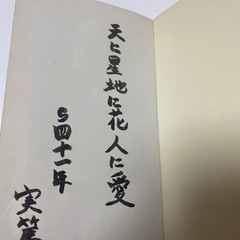 天に星地に花人に愛
S四十一年
実篤